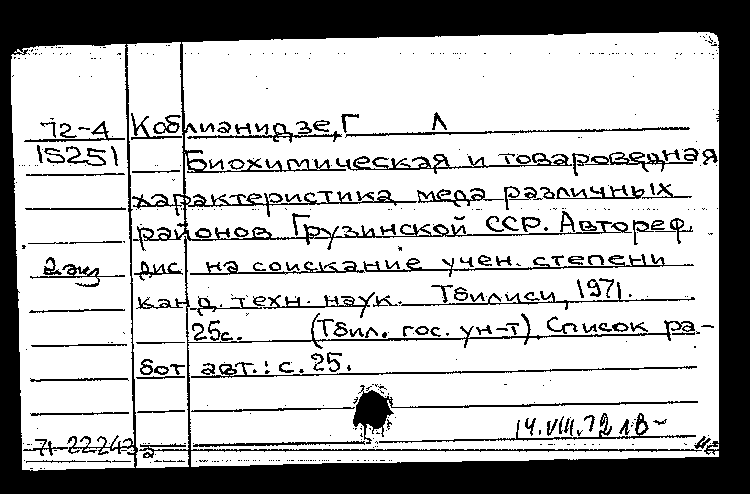 72-4 Коблианидзе, Г Л
15251 Биохимическая и товароведная
характеристика меда различных
районов Грузинской ССР. Автореф.
2 экз дис на соискание учен. степени
канд. техн. наук. Тбилиси, 1971.
25с. (Тбил. гос. ун-т). Список ра-
бот авт.: с. 25.
14.VIII.72
71-22243а